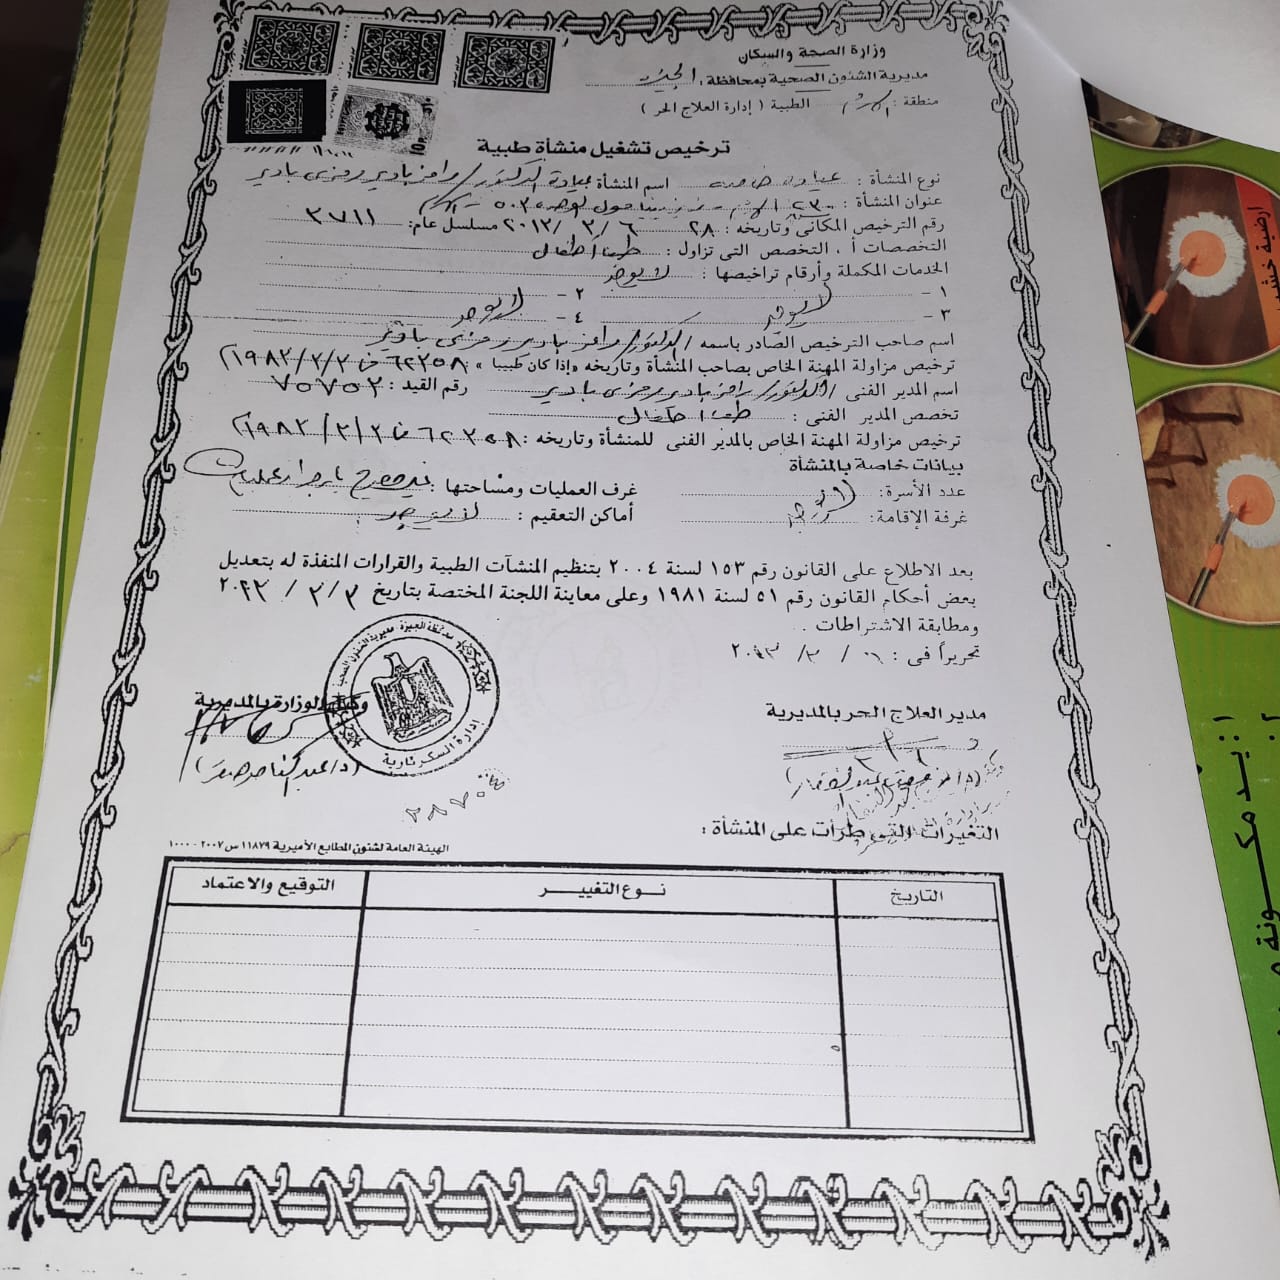 وزارة الصحة والسكان
مديرية الشئون الصحية بمحافظة : الجيزة
منطقة : الهرم الطبية ( إدارة العلاج الحر )
ترخيص تشغيل منشأة طبية
نوع المنشأة : عيادة خاصة اسم المنشأة عيادة الدكتور/ رامز بادير رمزى بادير
عنوان المنشأة : ٢٣٠ الهرم
رقم الترخيص المكانى وتاريخه : ٢٨ ٦ / ٣ / ٢٠١٣ مسلسل عام: ٣٧١١
التخصصات أ ، التخصص التى تزاول : طب أطفال
الخدمات المكملة وأرقام تراخيصها : لا يوجد
١ - ٢ -
٣ - لا يوجد ٤ - لا يوجد
اسم صاحب الترخيص الصادر باسمه / الدكتور/ رامز بادير رمزى بادير
ترخيص مزاولة المهنة الخاص بصاحب المنشأة وتاريخه «إذا كان طبيبا» ٦٢٣٥٨ فى ١٩٨٣/٣/٢
اسم المدير الفنى / الدكتور/ رامز بادير رمزى بادير رقم القيد : ٧٥٧٥٢
تخصص المدير الفنى : طب أطفال
ترخيص مزاولة المهنة الخاص بالمدير الفنى للمنشأة وتاريخه : ٦٢٣٥٨ فى ١٩٨٣/٣/٢
بيانات خاصة بالمنشأة
عدد الأسرة: لا يوجد غرف العمليات ومساحتها : غير مصرح بإجراء عمليات
غرفة الإقامة: لا يوجد أماكن التعقيم : لا يوجد
بعد الاطلاع على القانون رقم ١٥٣ لسنة ٢٠٠٤ بتنظيم المنشآت الطبية والقرارات المنفذة له بتعديل
بعض أحكام القانون رقم ٥١ لسنة ١٩٨١ وعلى معاينة اللجنة المختصة بتاريخ ٣ / ٣ /
ومطابقة الاشتراطات .
تحريراً فى :
مدير العلاج الحر بالمديرية
وكيل الوزارة بالمديرية
محافظة الجيزة مديرية الشئون الصحية
إدارة السكرتارية
(د/عبد الناصر صقر)
التغيرات التى طرأت على المنشأة :
الهيئة العامة لشئون المطابع الأميرية ١١٨٧٩ س ٢٠٠٧ - ١٠٠٠
التاريخ نوع التغيير التوقيع والاعتماد
أرضية خشب
١ : يد مكونة
٢ :